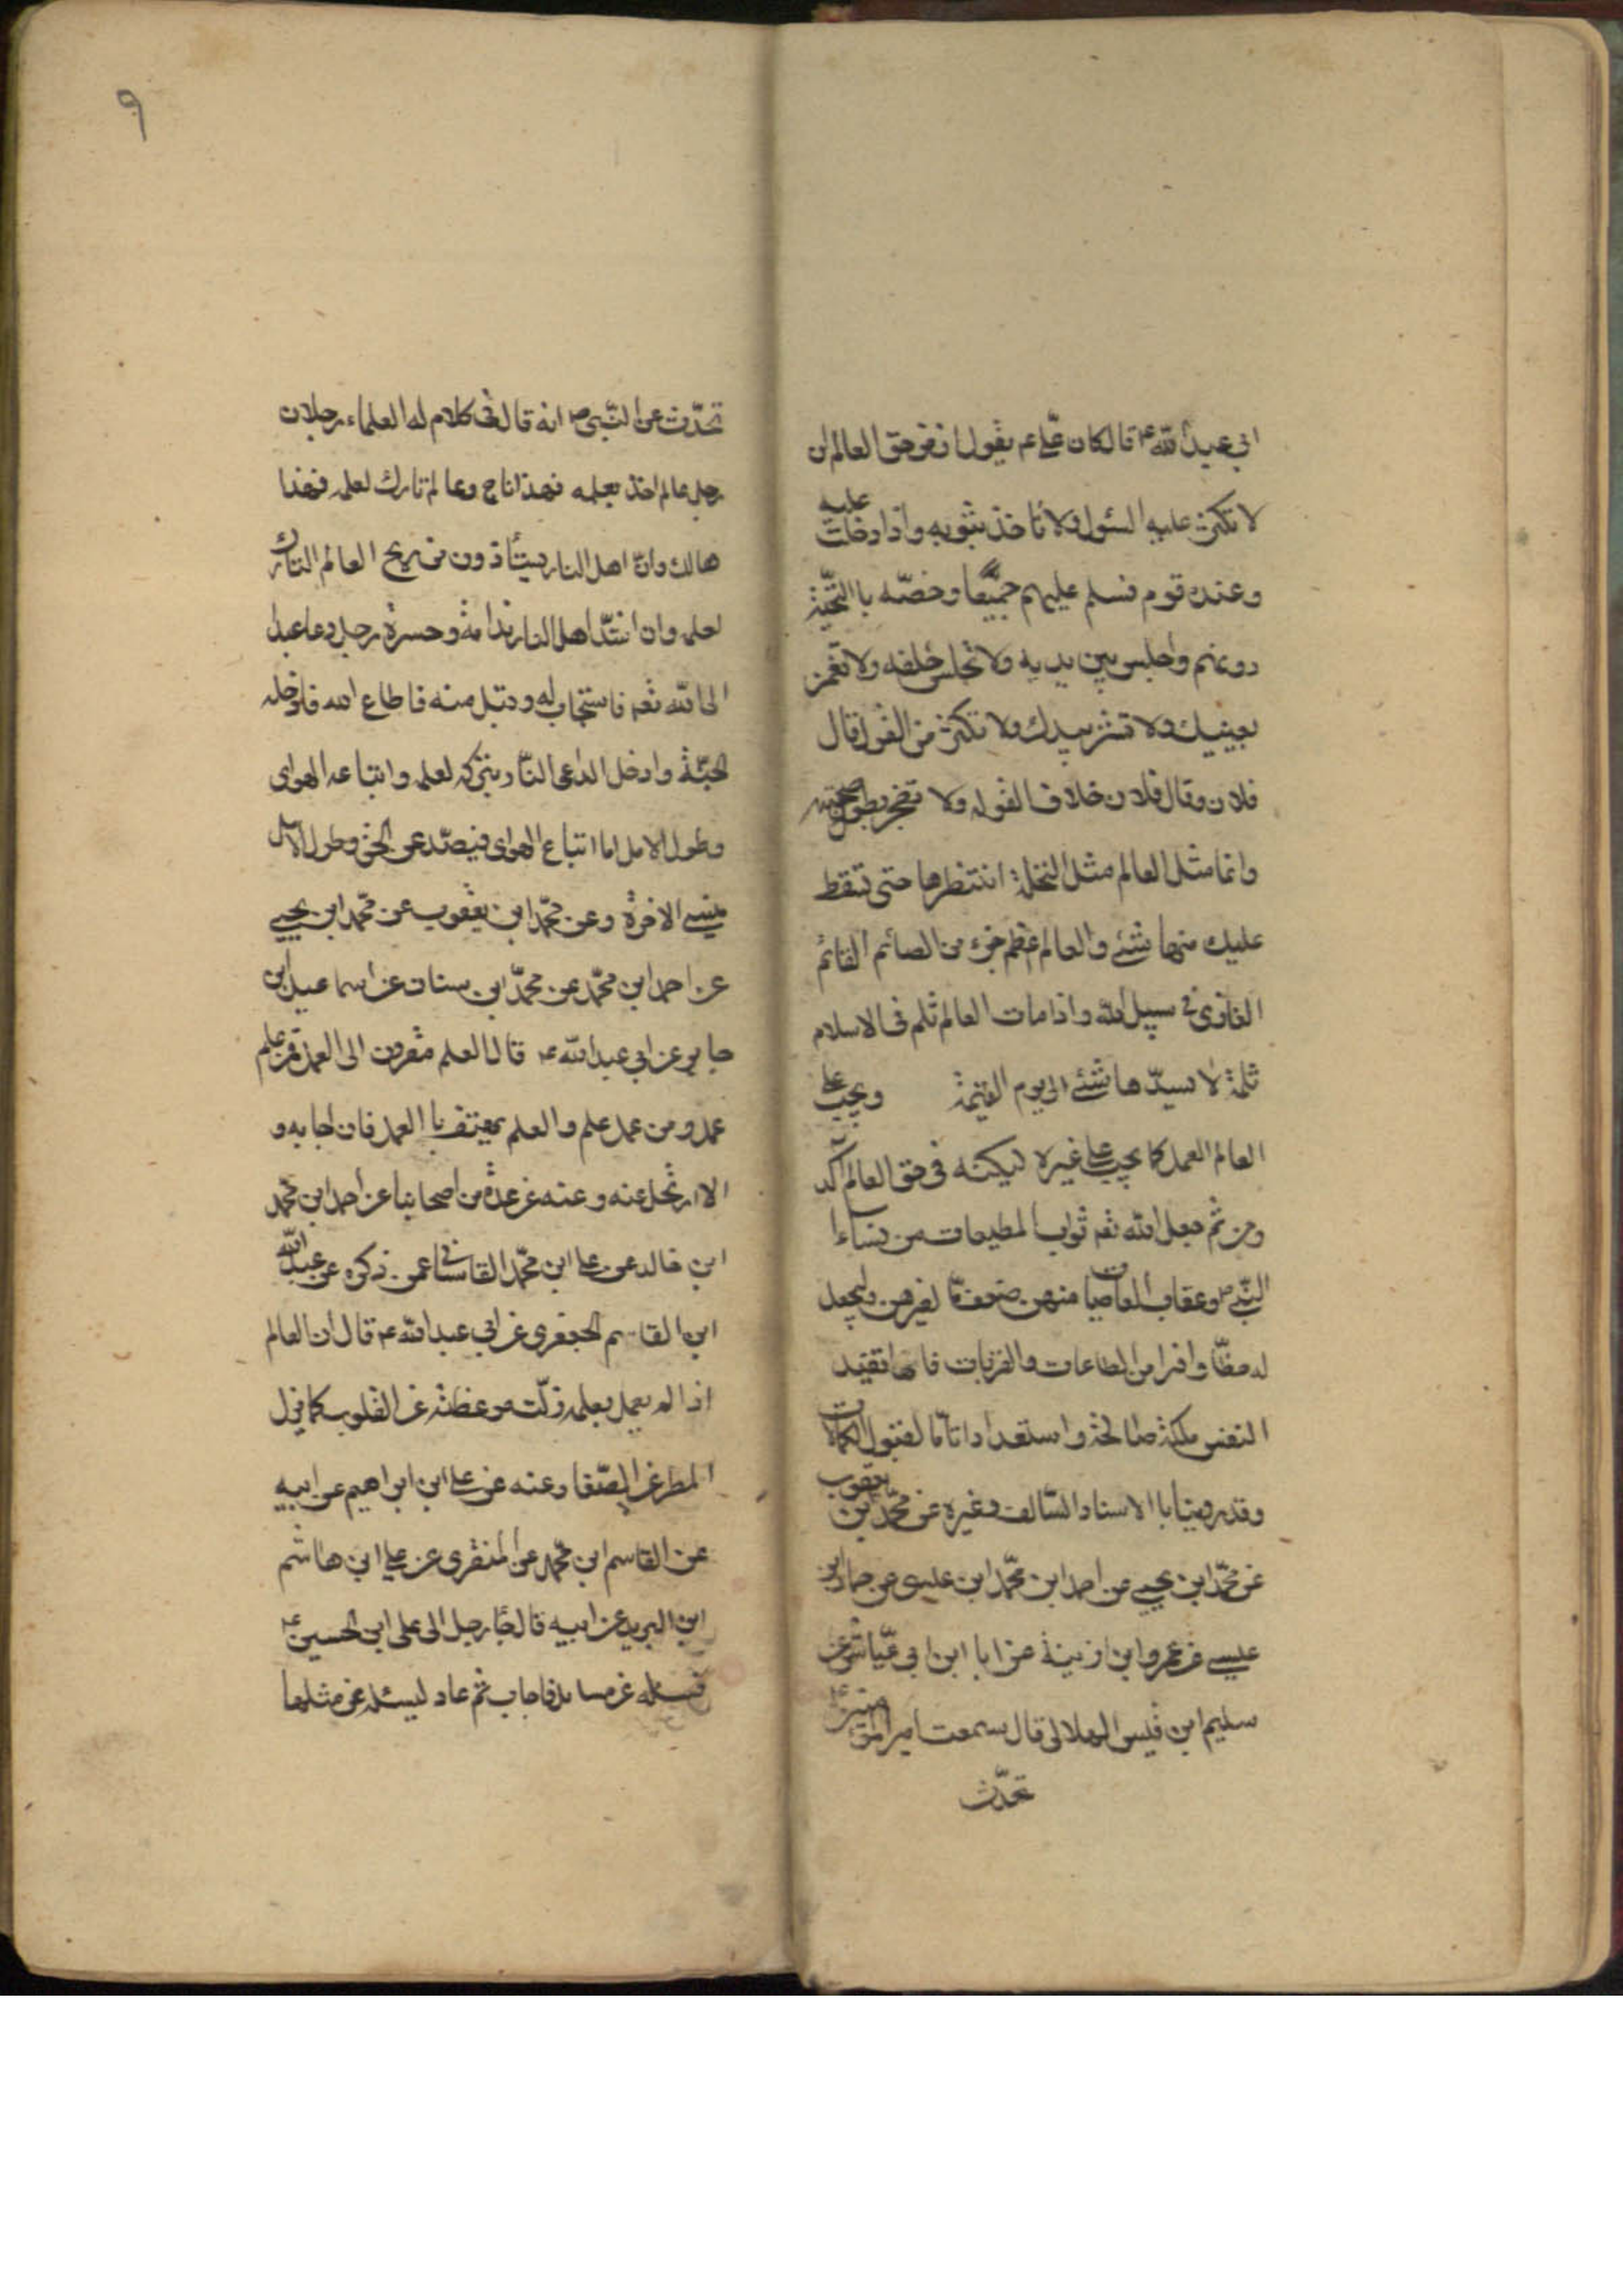 ابي عبد الله ع قال كان علي ع يقول ان من حق العالم ان
لا تكثر عليه السئول ولا تاخذ بثوبه واذا دخلت عليه
وعنده قوم فسلم عليهم جميعا وخصّه با التحيّة
دونهم واجلس بين يديه ولا تجلس خلفه ولا تغمز
بعينيك ولا تشر بيدك ولا تكثر من القول قال
فلان وقال فلان خلاف القوله ولا تضجر بطول صحبته
وانما مثل العالم مثل النخلة انتظرها حتى تسقط
عليك منها شئ والعالم اعظم اجرا من الصائم القائم
الغازى في سبيل الله واذا مات العالم ثلم في الاسلام
ثلمة لا يسدّها شئ الى يوم القيمة ويجب على
العالم العمل كما يجب على غيره ليكنه في حق العالم آكد
ومن ثم جعل الله تعم ثواب المطيعات من نساء
النّبي ص وعقاب العاصيات منهن ضعف ما لغيرهن وليجعل
له حظّا وافرا من الطاعات والقربات فانها تفيد
النفس ملكة صالحة واستعدادا تامّا لقبول الكمالات
وقد روينا با الاسناد السّالف وغيره عن محمّد بن يعقوب
عن محمّد ابن يحيى عن احمد ابن محمّد ابن عيسى عن حماد ابن
عيسى عن عمر وابن اذينة عن ابا ابن ابي عيّاش عن
سليم ابن قيس الهلالى قال سمعت امير المؤمنين ع
تحدّث
٩
تحدّث عن النّبى ص انه قال فى كلام له العلماء رجلان
رجل عالم اخذ بعلمه فهذا ناج وعالم تارك لعلمه فهذا
هالك وانّ اهل النار يستأذون من ريح العالم التارك
لعلمه وان اشدّ اهل النار ندامة وحسرة رجل دعا عبدا
الى الله تعم فاستجاب له وقبل منه فاطاع الله فادخله
الجنّة وادخل الداعى النّار بتركه لعلمه واتباعه الهواى
وطول الامل اما اتباع الهواى فيصدّ عن الحق وطول الامل
ينسى الاخرة وعن محمّد ابن يعقوب عن محمّد ابن يحيى
عن احمد ابن محمّد عن محمّد ابن سنان عن اسماعيل ابن
جابر عن ابي عبد الله ع قال العلم مقرون الى العمل فمن علم
عمل ومن عمل علم والعلم يهتف با العمل فان اجابه و
الا ارتحل عنه وعنه عن عدة من اصحابنا عن احمد ابن محمّد
ابن خالد عن على ابن محمّد القاسانى عمن ذكره عن عبد الله
ابن القاسم الجعفرى عن ابي عبد الله ع قال ان العالم
اذا لم يعمل بعلمه زلّت موعظته عن القلوب كما يزل
المطر عن الصّفا وعنه عن على ابن ابراهيم عن ابيه
عن القاسم ابن محمّد عن المنقرى عن على ابن هاشم
ابن البريد عن ابيه قال جاء رجل الى على ابن الحسين ع
فسئله عن مسائل فاجاب ثم عاد ليسئله عن مثلها